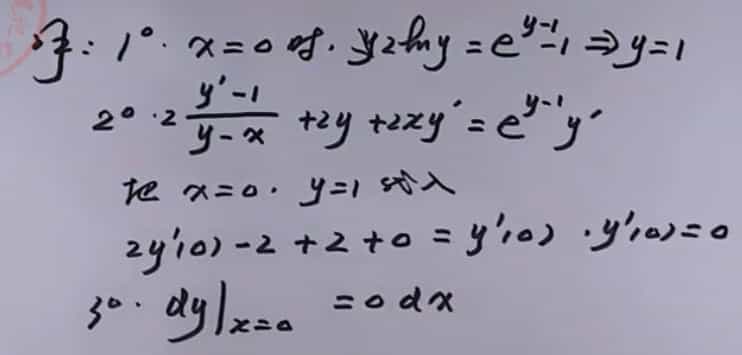 解: 1°. x=0时. 2lny=e^{y-1}-1 ⇒ y=1
2°. 2\frac{y'-1}{y-x}+2y+2xy'=e^{y-1}y'
把 x=0. y=1 代入
2y'(0)-2+2+0=y'(0). y'(0)=0
3°. dy|_{x=0} =0dx